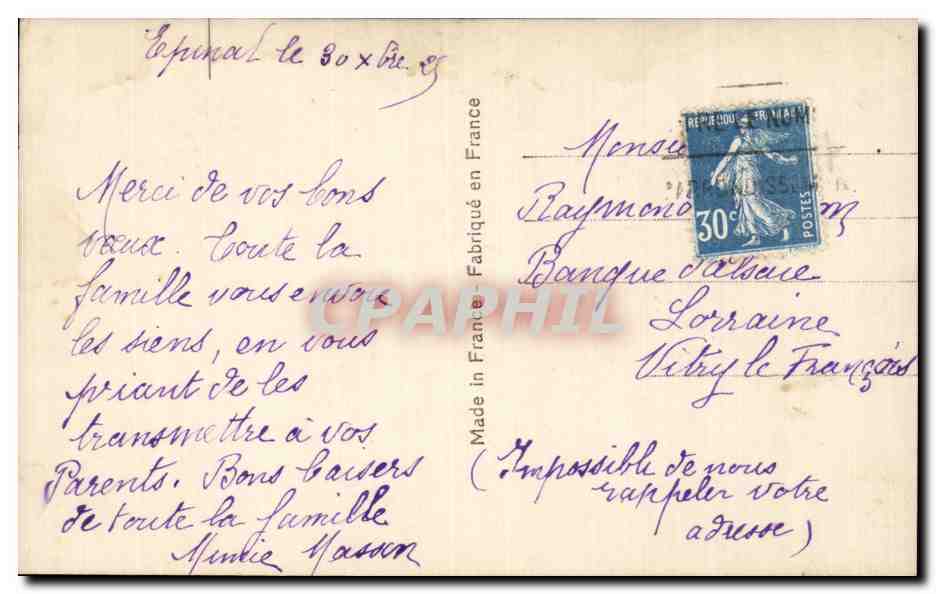 Epinal le 30 Xbre 25
Merci de vos bons
vœux. Toute la
famille vous envoie
les siens, en vous
priant de les
transmettre à vos
Parents. Bons baisers
de toute la famille
Mimie Masson
Made in France - Fabriqué en France
REPUBLIQUE FRANÇAISE
30c
POSTES
Raymond
Banque d'Alsace
Lorraine
Vitry le François
(Impossible de nous
rappeler votre
adresse)
CPAPHIL